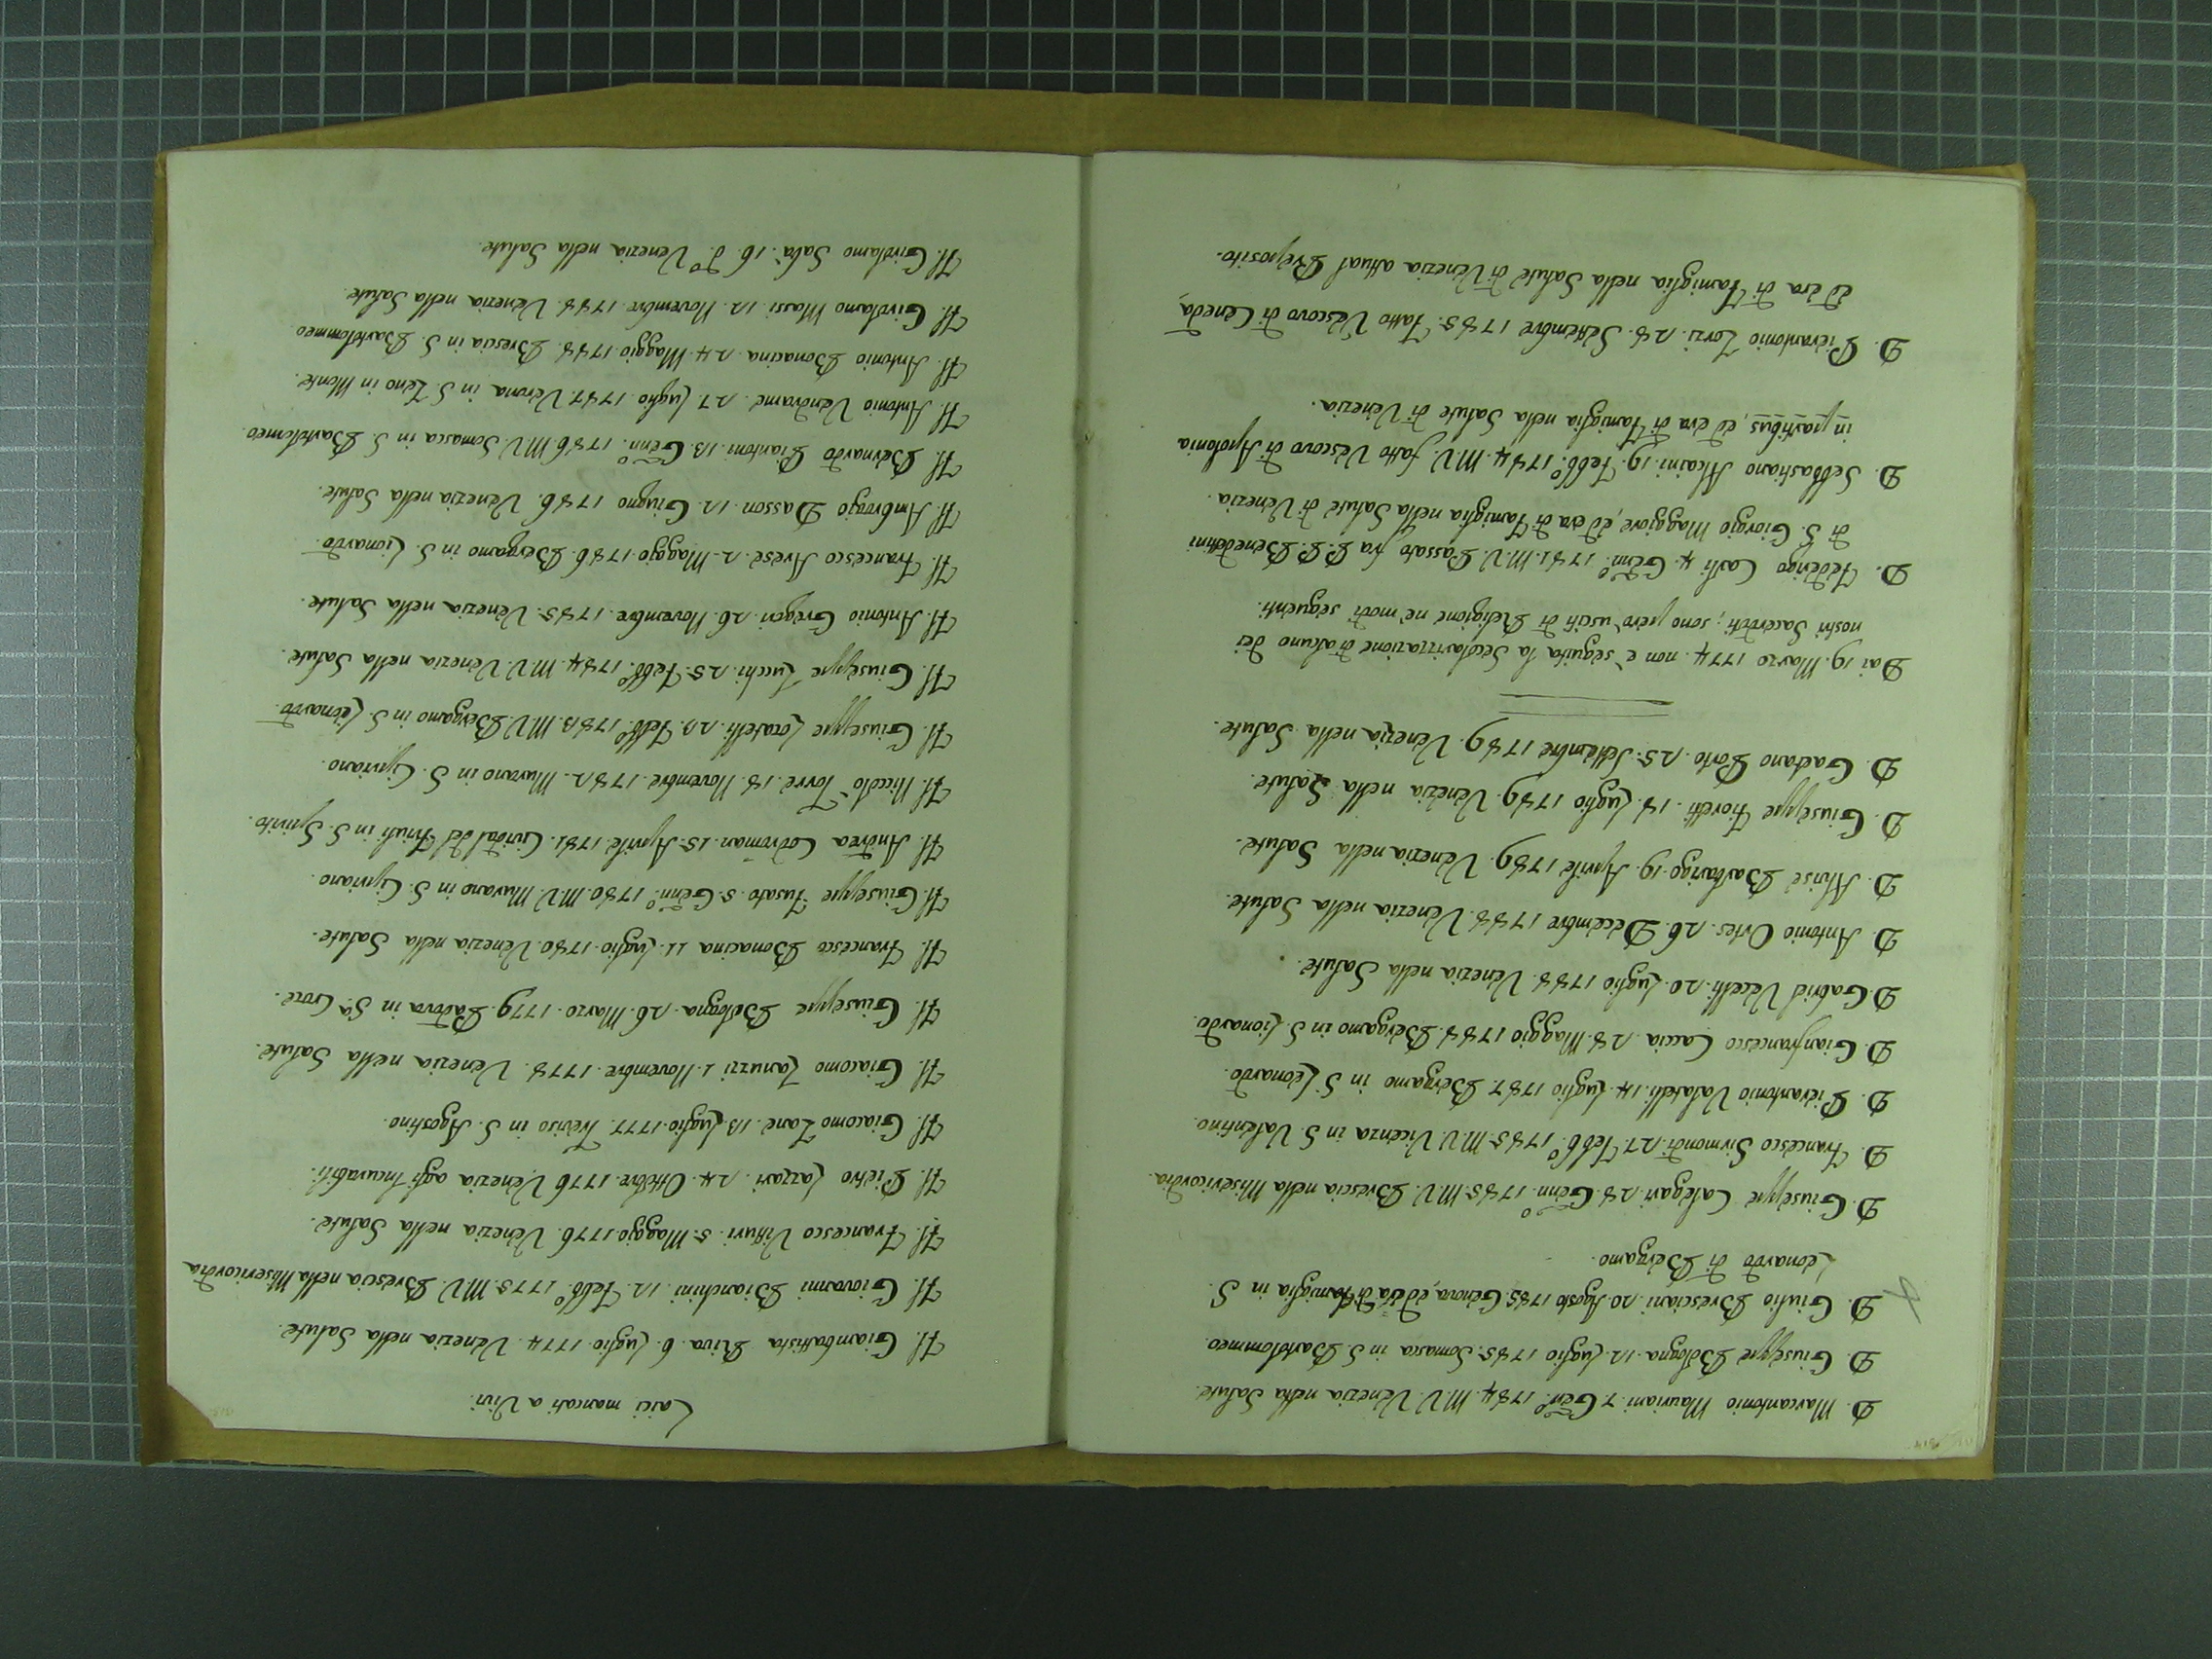 D. Marcantonio Mauriani. 7. Genn.º 1784. M.V. Venezia nella Salute.
D. Giuseppe Bologna. 12. Luglio 1785. Somasca in S. Bartolommeo
D. Giulio Bresciani. 20. Agosto 1785. Genova, ed era di Famiglia in S.
Leonardo di Bergamo.
D. Giuseppe Calegari. 28. Genn.º 1785. M.V. Brescia nella Misericordia
D. Francesco Sirmondi. 27. Febb.º 1785. M.V. Vicenza in S. Valentino.
D. Pierantonio Valatelli. 14. Luglio 1787. Bergamo in S. Leonardo.
D. Gianfrancesco Caccia. 28. Maggio 1788. Bergamo in S. Lionardo.
D. Gabriel Vecelli. 20. Luglio 1788. Venezia nella Salute.
D. Antonio Ortes. 26. Decembre 1788. Venezia nella Salute.
D. Alvise Barbarigo. 19. Aprile 1789. Venezia nella Salute.
D. Giuseppe Fioretti. 18. Luglio 1789. Venezia nella Salute.
D. Gaetano Porto. 25. Settembre 1789. Venezia nella Salute.
Dai 19. Marzo 1774. non è seguita la Secolarizzazione di alcuno dei
nostri Sacerdoti; sono però usciti di Religione ne' modi seguenti.
D. Federigo Casti. 4. Genn.º 1781. M.V. Passato fra P.P. Benedettini
di S. Giorgio Maggiore, ed era di Famiglia nella Salute di Venezia.
D. Sebbastiano Alcaini. 19. Febb.º 1784. M.V. fatto Vescovo di Apolonia
in partibus, ed era di Famiglia nella Salute di Venezia.
D. Pierantonio Zorzi. 28. Settembre 1785. Fatto Vescovo di Ceneda,
ed era di Famiglia nella Salute di Venezia attual Preposito.
Laici mancati a Vivi.
H. Giambattista Riva. 6. Luglio. 1774. Venezia nella Salute.
H. Giovanni Bianchini. 12. Febb.º 1775. M.V. Brescia nella Misericordia
H. Francesco Vitturi. 5. Maggio. 1776. Venezia nella Salute.
H. Pietro Lazzari. 24. Ottobre. 1776. Venezia agli Incurabili.
H. Giacomo Zane. 13. Luglio. 1777. Treviso in S. Agostino.
H. Giacomo Zanuzzi 1. Novembre. 1778. Venezia nella Salute.
H. Giuseppe Bologna. 26. Marzo. 1779. Padova in S.ª Croce.
H. Francesco Bonacina. 11. Luglio. 1780. Venezia nella Salute.
H. Giuseppe Fusato. 5. Genn.º 1780. M.V. Murano in S. Cipriano.
H. Andrea Codroman. 15. Aprile. 1781. Cividal del Friuli in S. Spirito.
H. Niccolò Torre. 18. Novembre. 1782. Murano in S. Cipriano.
H. Giuseppe Locatelli. 23. Febb.º 1783. M.V. Bergamo in S. Leonardo.
H. Giuseppe Zucchi. 25. Febb.º 1784. M.V. Venezia nella Salute.
H. Antonio Gregori. 26. Novembre. 1785. Venezia nella Salute.
H. Francesco Avese. 2. Maggio. 1786. Bergamo in S. Lionardo.
H. Ambrogio Dasson. 12. Giugno 1786. Venezia nella Salute.
H. Bernardo Piantoni. 13. Genn.º 1786. M.V. Somasca in S. Bartolomeo.
H. Antonio Vendrame. 27. Luglio 1787. Verona in S. Zeno in Monte.
H. Antonio Bonacina. 24. Maggio 1788. Brescia in S. Bartolommeo
H. Girolamo Massi. 12. Novembre. 1788. Venezia nella Salute.
H. Girolamo Salà. 16. d.º Venezia nella Salute.